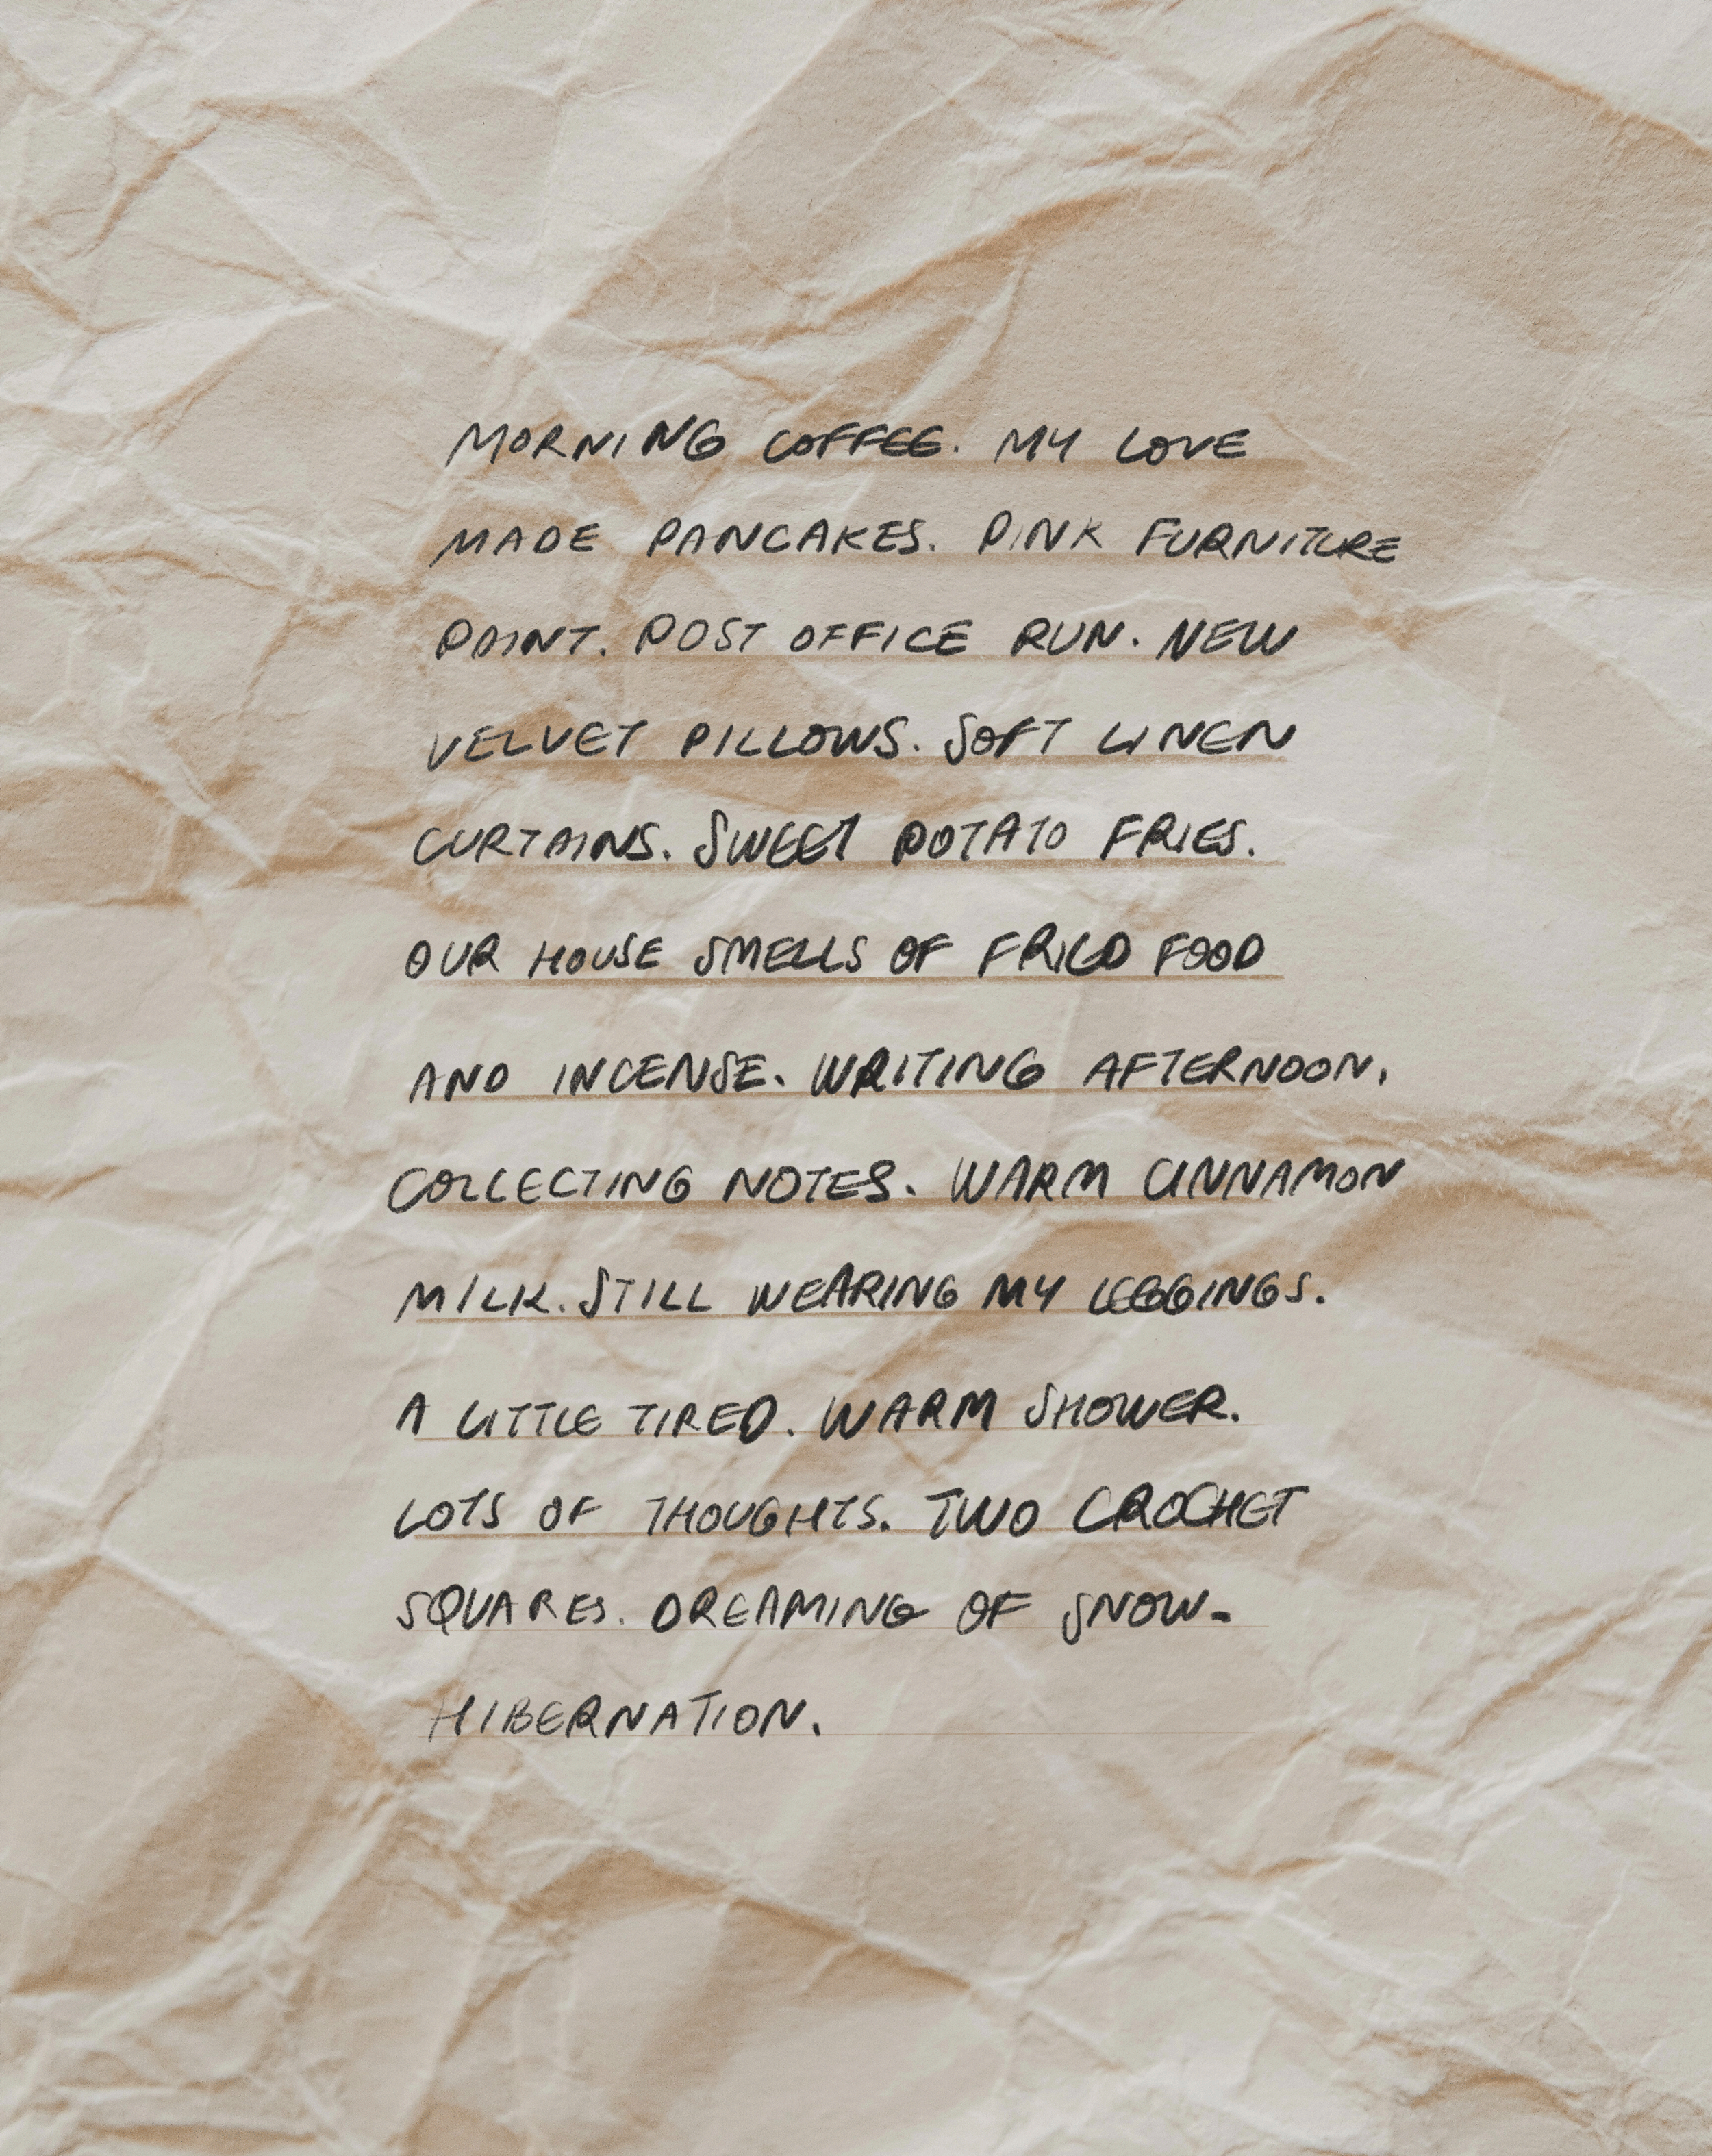 MORNING COFFEE. MY LOVE
MADE PANCAKES. PINK FURNITURE
PAINT. POST OFFICE RUN. NEW
VELVET PILLOWS. SOFT LINEN
CURTAINS. SWEET POTATO FRIES.
OUR HOUSE SMELLS OF FRIED FOOD
AND INCENSE. WRITING AFTERNOON.
COLLECTING NOTES. WARM CINNAMON
MILK. STILL WEARING MY LEGGINGS.
A LITTLE TIRED. WARM SHOWER.
LOTS OF THOUGHTS. TWO CROCHET
SQUARES. DREAMING OF SNOW.
HIBERNATION.